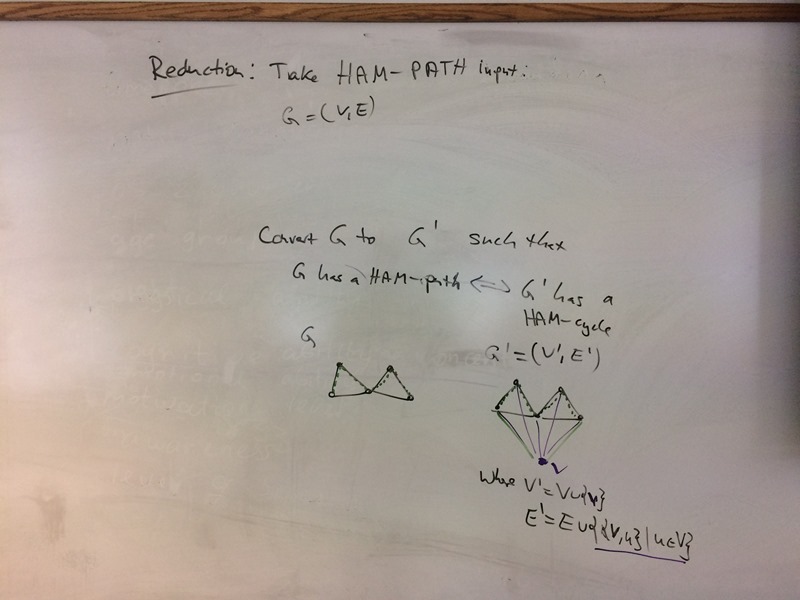 Reduction: Take HAM-PATH input:
G = (V, E)
Convert G to G' such that
G has a HAM-path <=> G' has a
HAM-cycle
G
G' = (V', E')
v
where V' = V∪{v}
E' = E∪{{v,u} | u∈V}